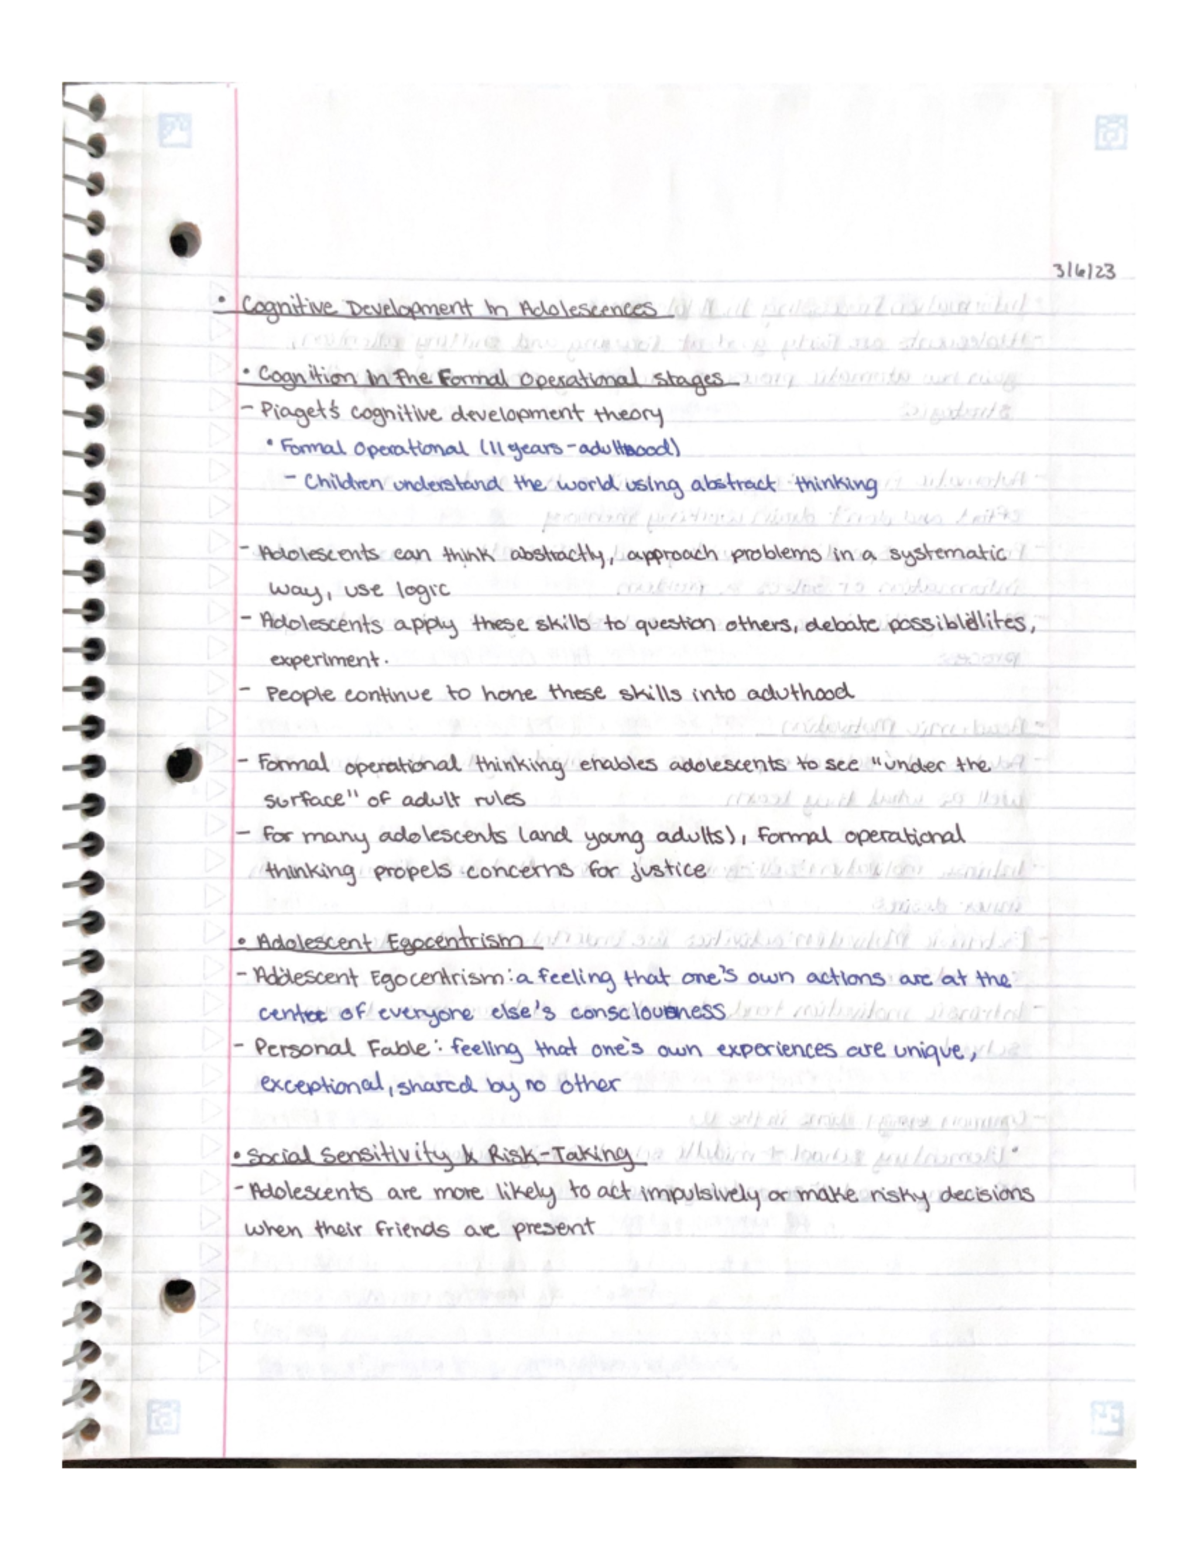 3/6/23
• Cognitive Development In Adolescences
• Cognition In The Formal Operational Stages
- Piaget's cognitive development theory
• Formal Operational (11 years - adulthood)
- Children understand the world using abstract thinking
- Adolescents can think abstractly, approach problems in a systematic
way, use logic
- Adolescents apply these skills to question others, debate possibilites,
experiment.
- People continue to hone these skills into aduthood
- Formal operational thinking enables adolescents to see "under the
surface" of adult rules
- For many adolescents (and young adults), formal operational
thinking propels concerns for justice
• Adolescent Egocentrism
- Adolescent Egocentrism: a feeling that one's own actions are at the
center of everyone else's consciousness
- Personal Fable: feeling that one's own experiences are unique,
exceptional, shared by no other
• Social Sensitivity & Risk-Taking
- Adolescents are more likely to act impulsively or make risky decisions
when their friends are present